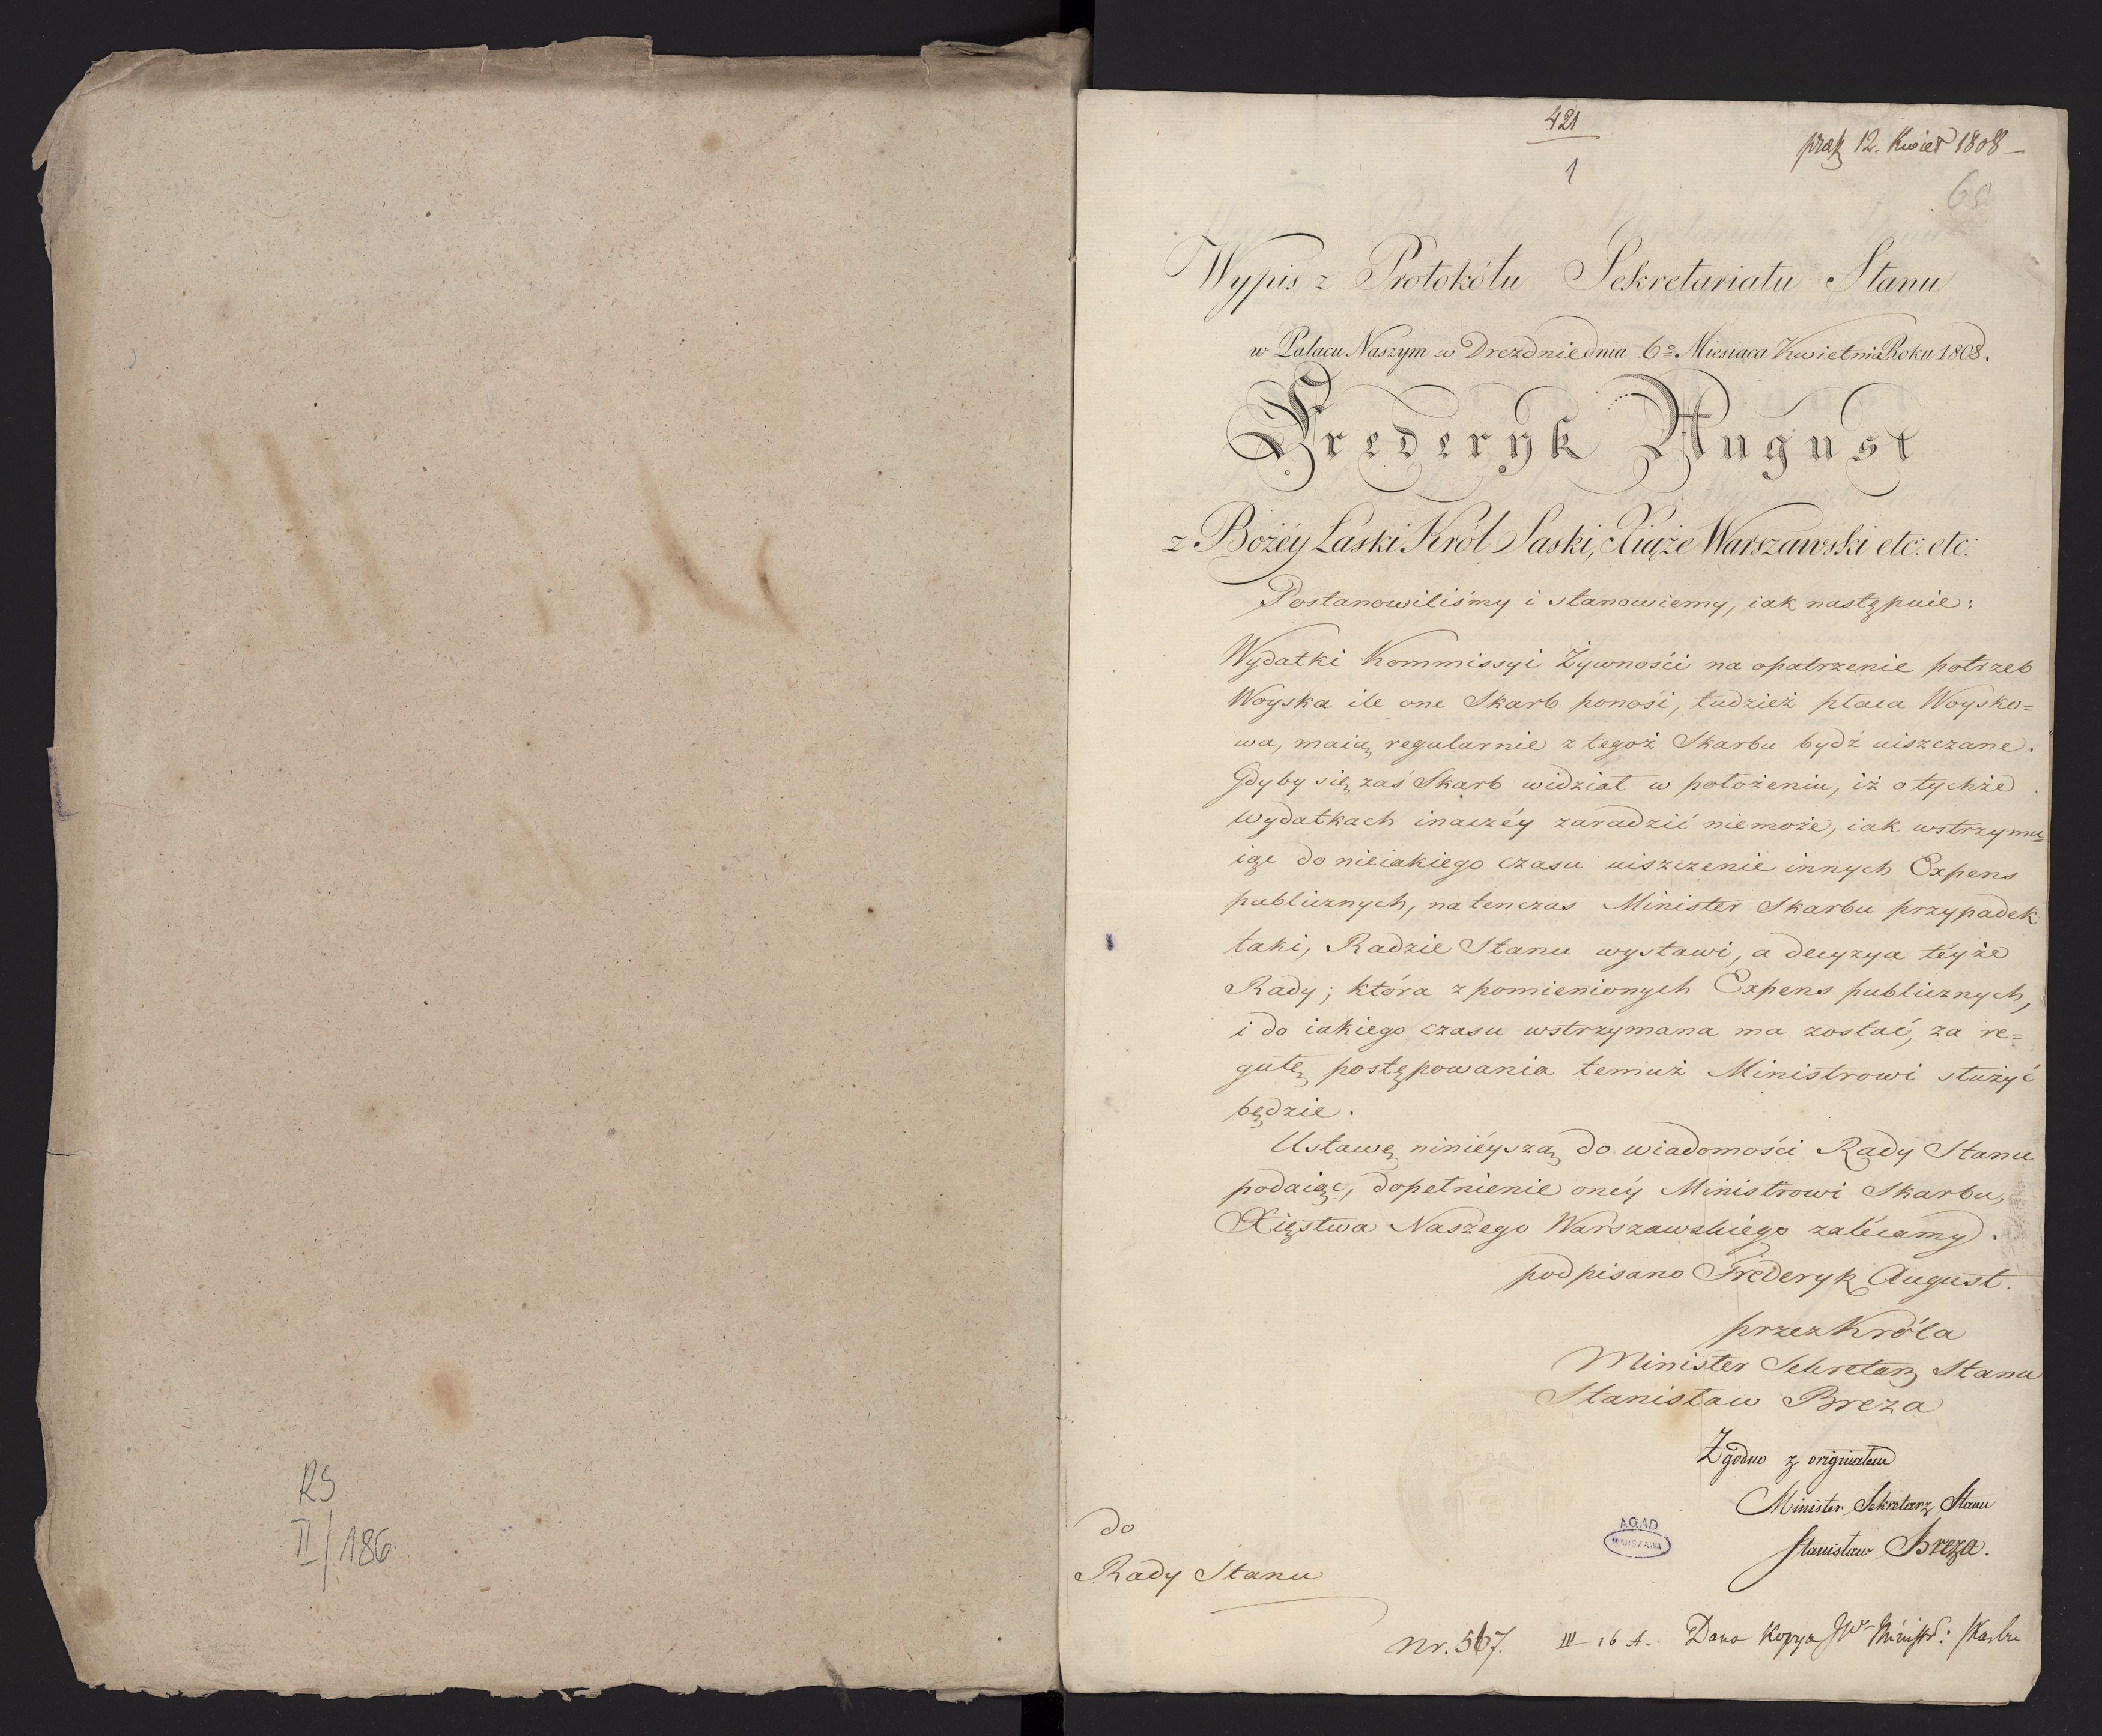 RS
II/186
421
1
12. Kwiet 1808
Wypis z Protokółu Sekretariatu Stanu
w Pałacu Naszym w Dreznie dnia 6º Miesiąca Kwietnia Roku 1808.
Frederyk August
z Bożéy Łaski Król Saski, Xiąże Warszawski etc: etc:
Postanowiliśmy i stanowiemy, iak następuie:
Wydatki Kommissyi Żywności na opatrzenie potrzeb
Woyska ile one Skarb ponosi, tudzież płaca Woysko=
wa, maią regularnie z tegoż Skarbu bydź uiszczane.
Gdyby się zaś Skarb widział w położeniu, iż o tychże
wydatkach inaczéy zaradzić niemoże, iak wstrzymu=
iąc do nieiakiego czasu uiszczenie innych Expens
publicznych, natenczas Minister Skarbu przypadek
taki, Radzie Stanu wystawi, a decyzya téyże
Rady; która z pomienionych Expens publicznych,
i do iakiego czasu wstrzymana ma zostać, za re=
gułę postępowania temuż Ministrowi służyć
będzie.
Ustawę ninieyszą do wiadomości Rady Stanu
podaiąc, dopełnienie onéy Ministrowi Skarbu,
Xięstwa Naszego Warszawskiego zalécamy.
podpisano Frederyk August.
przez Króla
Minister Sekretarz Stanu
Stanisław Breza
Zgodno z originałem
Minister Sekretarz Stanu
Stanisław Breza.
do
Rady Stanu
AGAD
WARSZAWA
Nr. 567. III 16 A. Dana Kopya JW Ministr: Skarbu